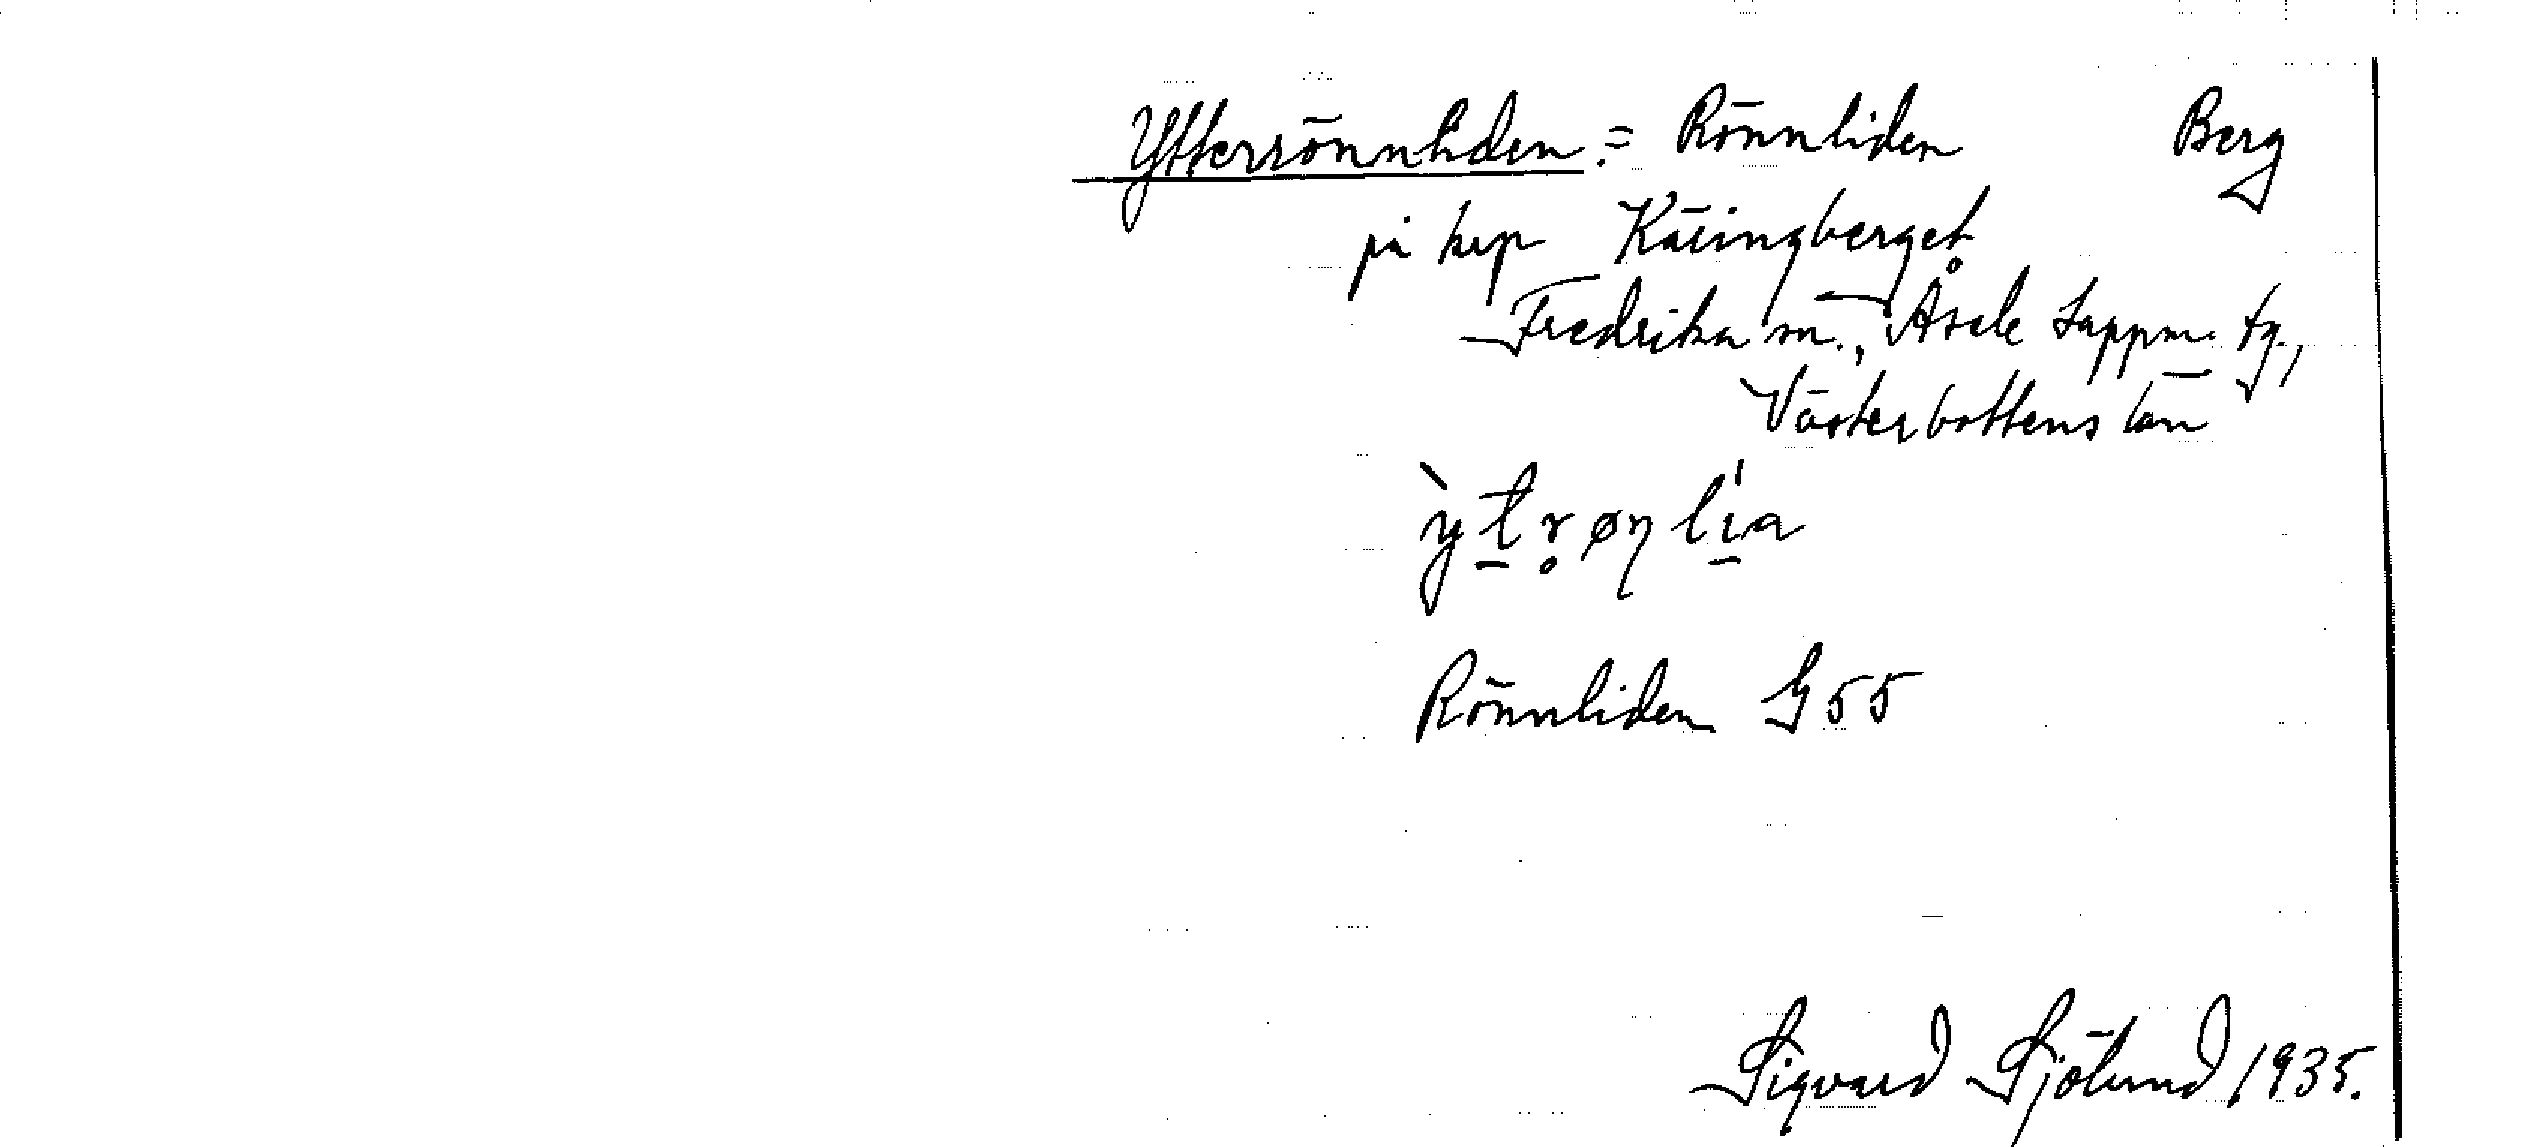 Ytterrönnliden. = Rönnliden Berg
på krp Käringberget
Fredrika sn., Åsele Lappm. tg.,
Västerbottens län
Rönnliden G55
Sigvard Sjölund 1935.